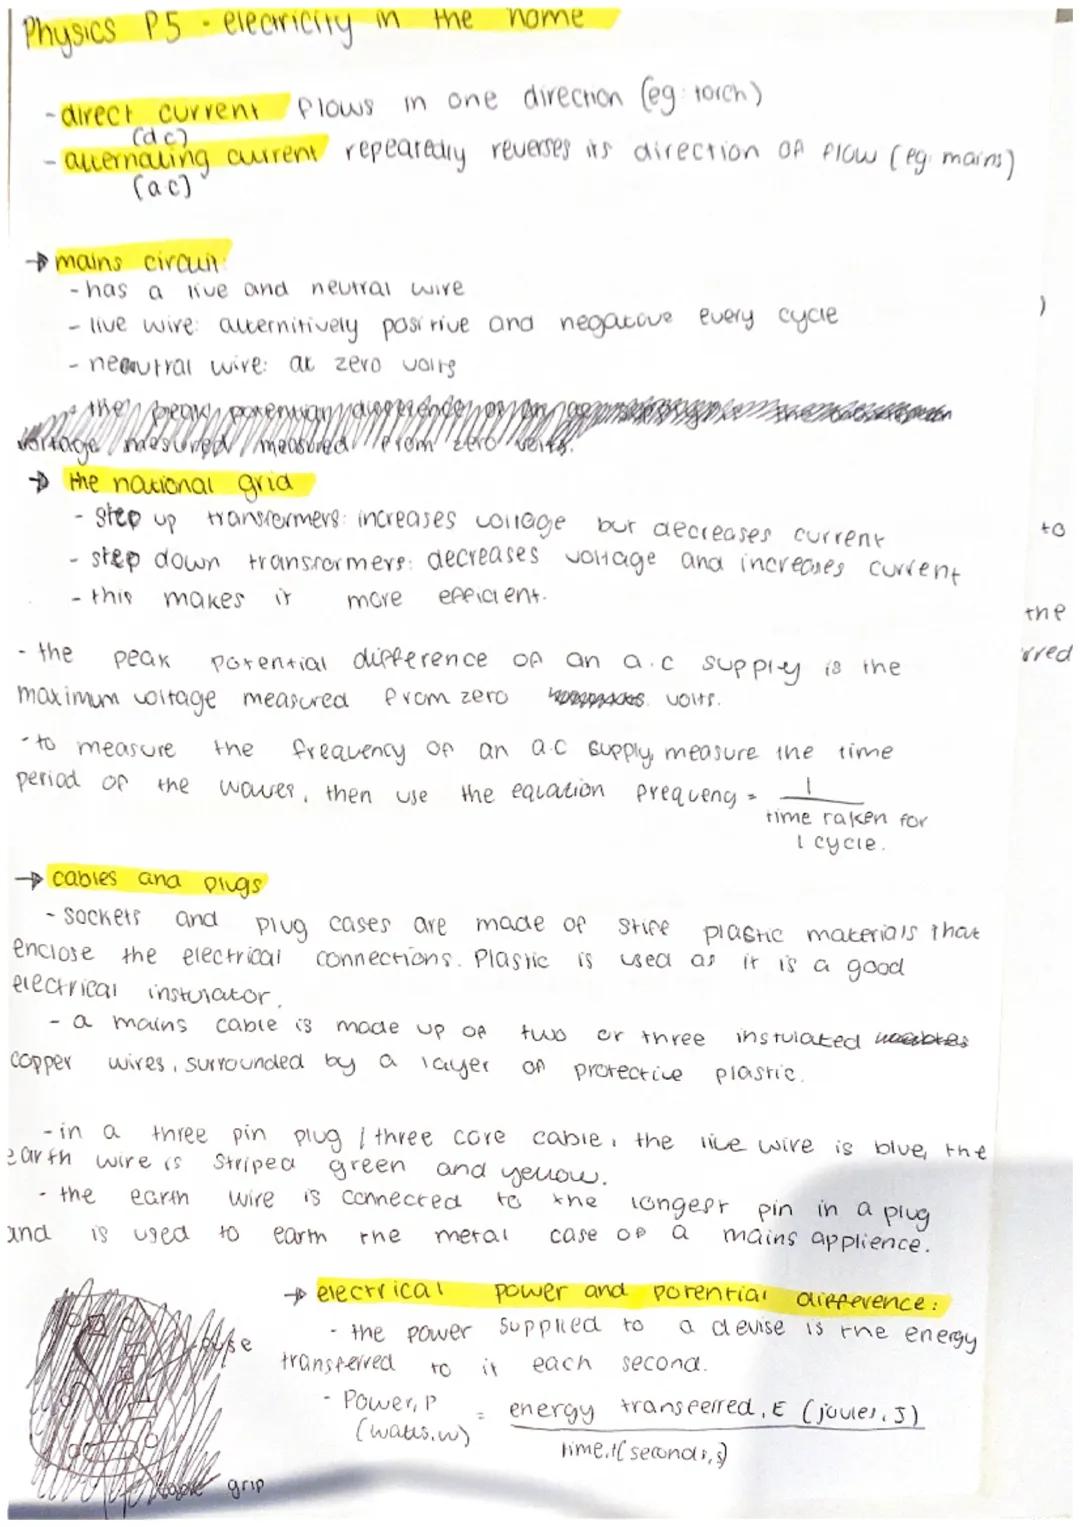 Physics P5 - electricity in the home
- direct current flows in one direction (eg: torch)
(dc)
- alternating current repeatedly reverses its direction of flow (eg. mains)
(a.c)
→ mains circuit:
- has a live and neutral wire
- live wire: alternitively positive and negative every cycle
)
- neutral wire: at zero volts
the peak potential difference of an
voltage mesured measured from zero volts.
→ the national grid
- step up transformers: increases voltage but decreases current
to
- step down transformers: decreases voltage and increases current
- this makes it more efficient.
the
- the peak potential difference of an a.c supply is the
rred
maximum voltage measured from zero volts.
- to measure the frequency of an a.c supply, measure the time
period of the waves, then use the equation frequency = 1
time taken for
1 cycle.
→ cables and plugs
- sockets and plug cases are made of stiff plastic materials that
enclose the electrical connections. Plastic is used as it is a good
electrical instulator.
- a mains cable is made up of two or three instulated
copper wires, surrounded by a layer of protective plastic.
- in a three pin plug / three core cable, the live wire is blue, the
earth wire is striped green and yellow.
- the earth wire is connected to the longest pin in a plug
and is used to earth the metal case of a mains applience.
→ electrical power and potential difference:
- the power supplied to a devise is the energy
fuse
transferred to it each second.
- Power, P = energy transferred, E (joules, J)
(watts, w) time, t (seconds, s)
cable grip